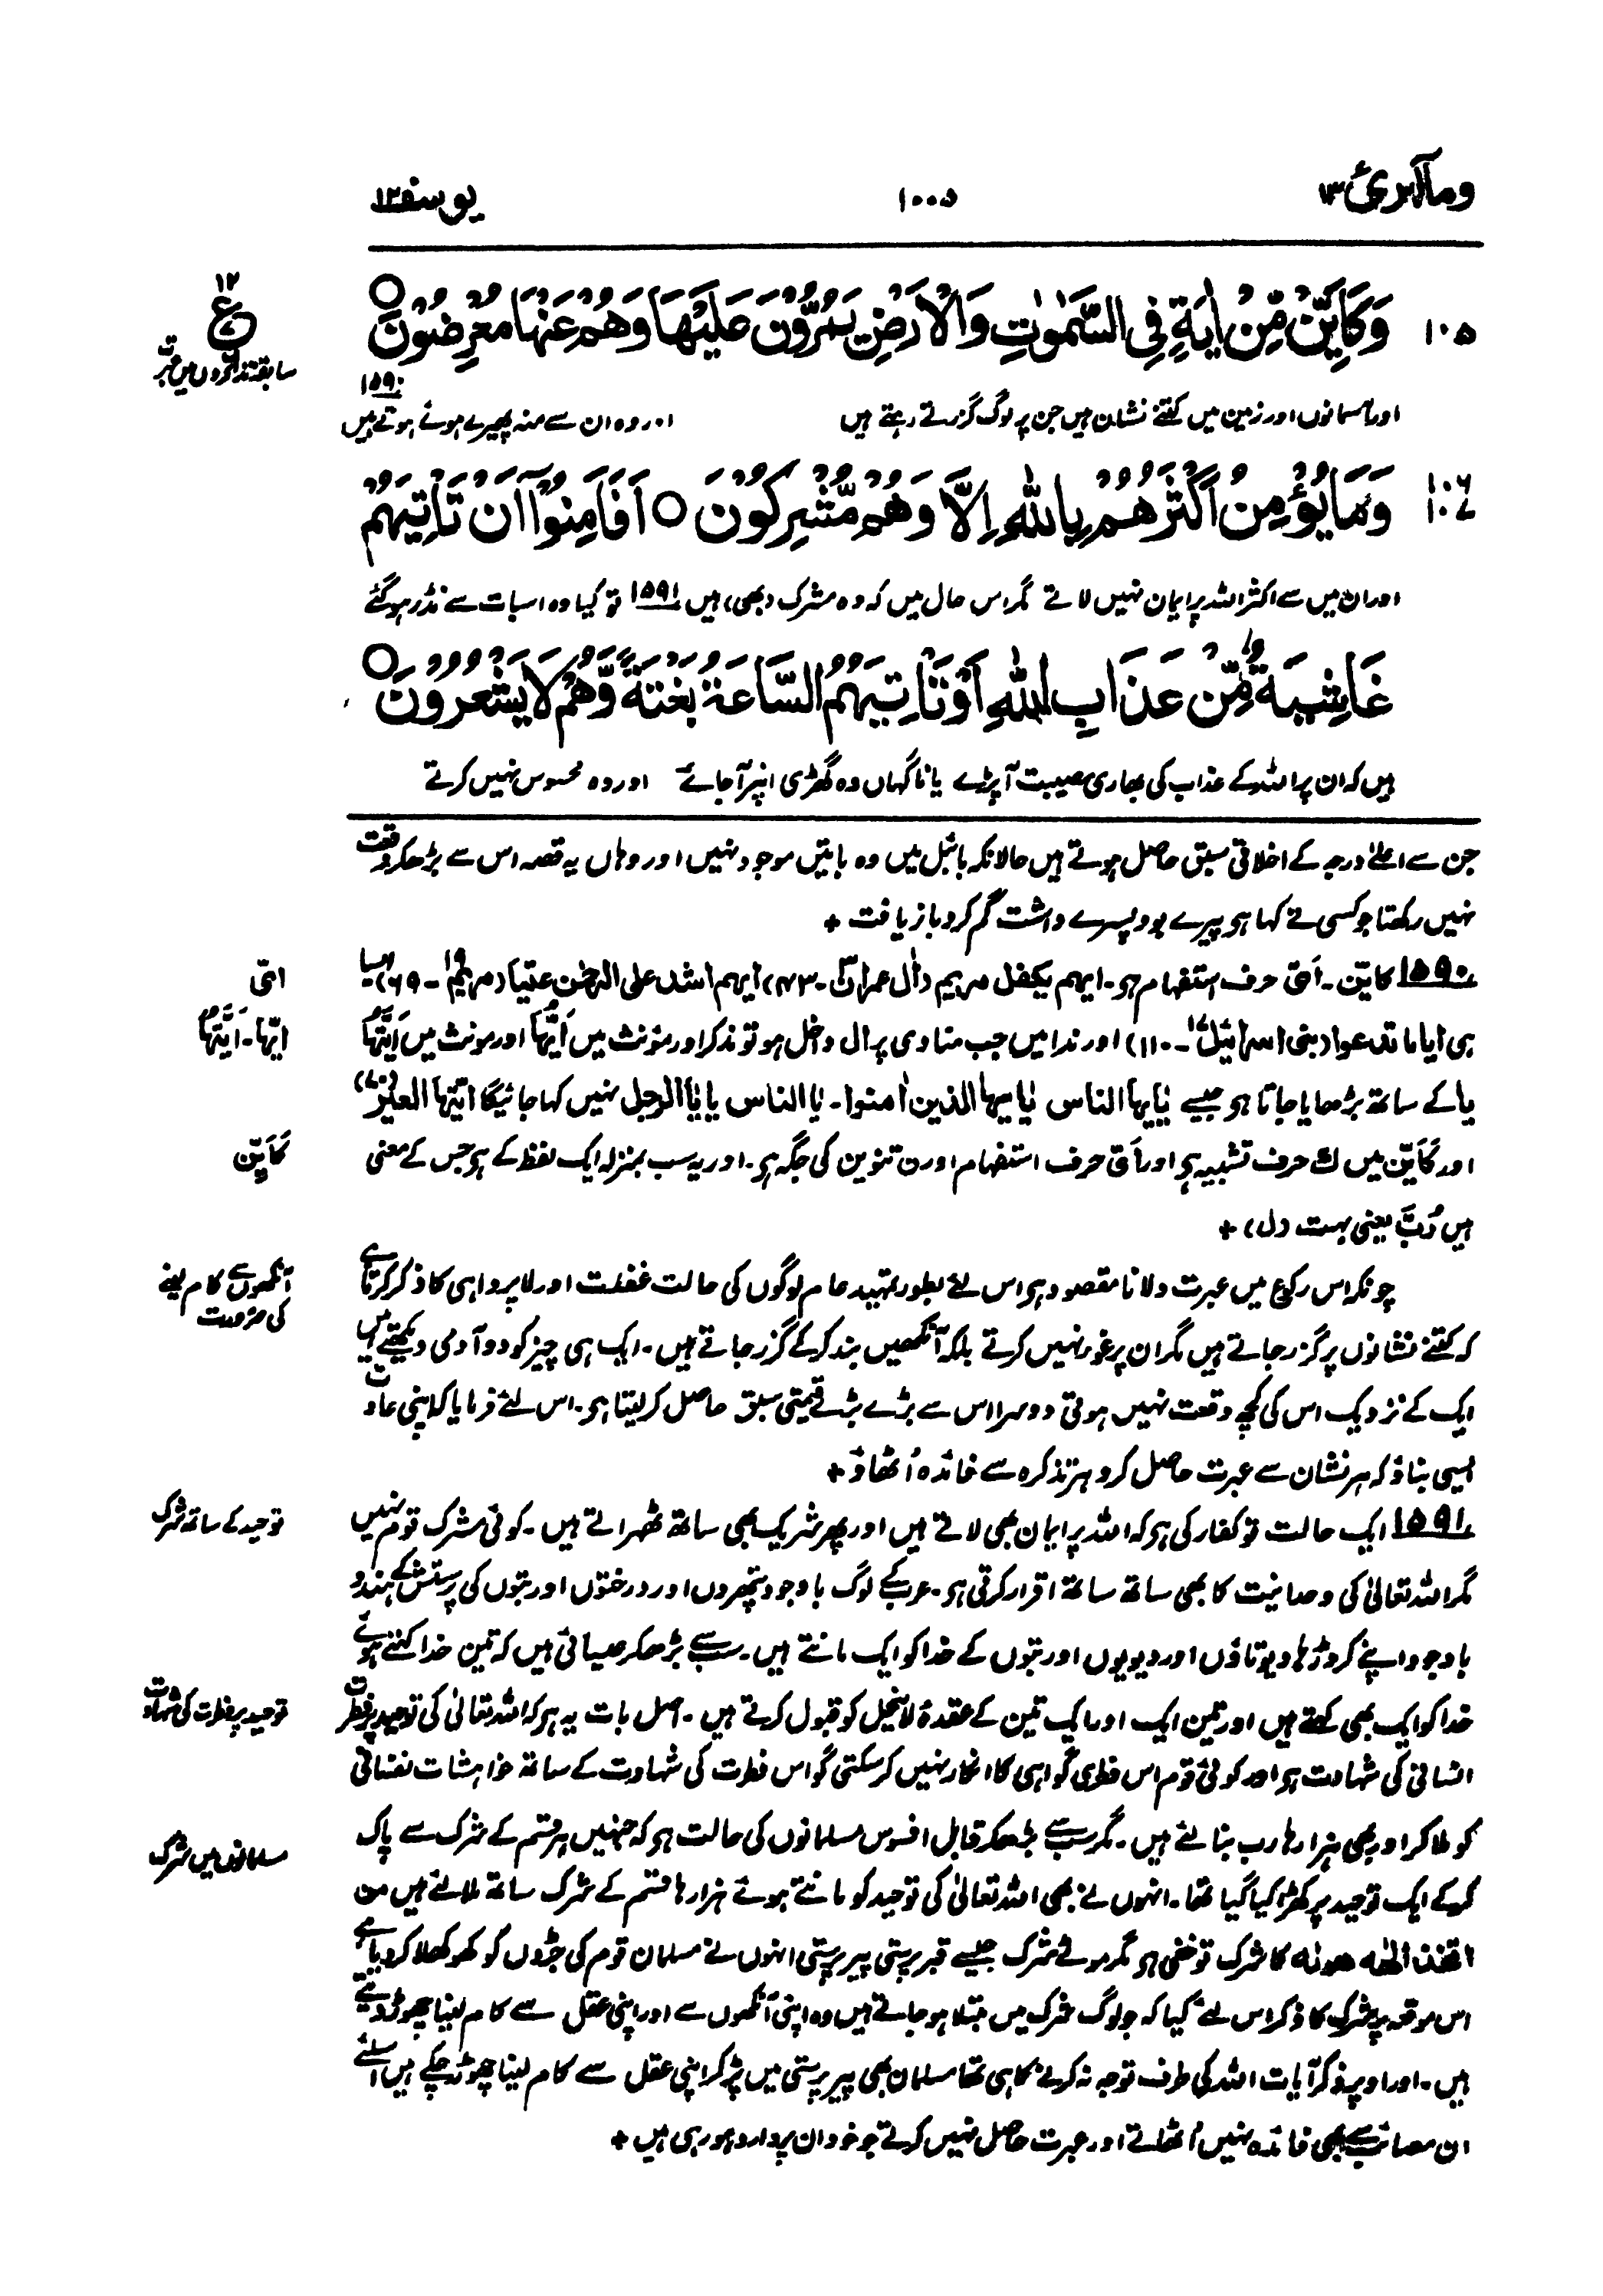 ومآ ابرئ ۱۳
۱۰۰۵
یوسف ۱۲
۱۰۵ وَكَاَيِّنْ مِّنْ اٰيَةٍ فِى السَّمٰوٰتِ وَالْاَرْضِ يَمُرُّوْنَ عَلَيْهَا وَهُمْ عَنْهَا مُعْرِضُوْنَ ○
۱۲
ع
سابقہ تذکروں میں عبرت
اور آسمانوں اور زمین میں کتنے نشان ہیں جن پر لوگ گزرتے رہتے ہیں اور وہ ان سے منہ پھیرے ہوئے ہوتے ہیں ۱۵۹۰
۱۰۶ ۱۰۷ وَمَا يُؤْمِنُ اَكْثَرُهُمْ بِاللّٰهِ اِلَّا وَهُمْ مُّشْرِكُوْنَ ○ اَفَاَمِنُوْٓا اَنْ تَاْتِيَهُمْ
اور ان میں سے اکثر اللہ پر ایمان نہیں لاتے مگر اس حال میں کہ وہ مشرک (بھی) ہیں ۱۵۹۱ تو کیا وہ اسبات سے نڈر ہوگئے
غَاشِيَةٌ مِّنْ عَذَابِ اللّٰهِ اَوْ تَاْتِيَهُمُ السَّاعَةُ بَغْتَةً وَّهُمْ لَا يَشْعُرُوْنَ ○
ہیں کہ ان پر اللہ کے عذاب کی بھاری مصیبت آپڑے یا ناگہاں وہ گھڑی انپر آجائے اور وہ محسوس نہیں کرتے
جن سے اعلےٰ درجہ کے اخلاقی سبق حاصل ہوتے ہیں حالانکہ بائبل میں وہ باتیں موجود نہیں اور وہاں یہ قصہ اس سے بڑھکر وقعت
نہیں رکھتا جو کسی نے کہا ہو پیرے بود پسرے داشت گم کرد باز یافت +
۱۵۹۰ کاین ۔ اَیّ حرف استفہام ہو ۔ ایہم یکفل مریم (اٰل عمران ۳ ۔ ۴۳) ایہم اشد علی الرحمٰن عتیا (مریم ۱۹ ۔ ۶۹)
اَیّ
ہی ایا ما تدعوا (بنی اسرائیل ۱۷ ۔ ۱۱۰) اور ندا میں جب منادی پر ال داخل ہو تو مذکر اور مؤنث میں اَیُّھَا اور مونث میں اَیَّتُھَا
ایّھا ۔ ایّتُھَا
یا کے ساتھ بڑھایا جاتا ہو جیسے یٰایہا الناس یٰایہا الذین اٰمنوا ۔ یا الناس یا یا الرجل نہیں کہا جائیگا ایتہا العیر (۷۰)
اور کَاَیِّن میں ک حرف تشبیہ ہو اور اَیّ حرف استفہام اور ن تنوین کی جگہ ہو ۔ اور یہ سب بمنزلہ ایک لفظ کے ہو جس کے معنی
کَاَیِّن
ہیں رُبَّ یعنی بہت (ل) +
چونکہ اس رکوع میں عبرت دلانا مقصود ہو اس لئے بطور تمہید عام لوگوں کی حالت غفلت اور لا پرواہی کا ذکر کرتا ہے
آنکھوں سے کام لینے
کی ضرورت
کہ کتنے نشانوں پر گزر جاتے ہیں مگر ان پر غور نہیں کرتے بلکہ آنکھیں بند کرکے گزر جاتے ہیں ۔ ایک ہی چیز کو دو آدمی دیکھتے ہیں
ایک کے نزدیک اس کی کچھ وقعت نہیں ہوتی دوسرا اس سے بڑے بڑے قیمتی سبق حاصل کر لیتا ہو ۔ اس لئے فرمایا کہ اپنی عادت
ایسی بناؤ کہ ہر نشان سے عبرت حاصل کرو ہر تذکرہ سے فائدہ اُٹھاؤ +
۱۵۹۱ ایک حالت تو کفار کی ہو کہ اللہ پر ایمان بھی لاتے ہیں اور پھر شریک بھی ساتھ ٹھہراتے ہیں ۔ کوئی مشرک قوم نہیں
توحید کے ساتھ شرک
مگر اللہ تعالیٰ کی وحدانیت کا بھی ساتھ ساتھ اقرار کرتی ہو ۔ عرب کے لوگ باوجود پتھروں اور درختوں اور بتوں کی پرستش کے ہندو
باوجود اپنے کروڑہا دیوتاؤں اور دیویوں اور بتوں کے خدا کو ایک مانتے ہیں ۔ سب سے بڑھکر عیسائی ہیں کہ تین خدا کہتے ہوئے
خدا کو ایک بھی کہتے ہیں اور تین ایک اور ایک تین کے عقدۂ لاینحل کو قبول کرتے ہیں ۔ اصل بات یہ ہو کہ اللہ تعالیٰ کی توحید پر فطرت
توحید پر فطرت کی شہادت
انسانی کی شہادت ہو اور کوئی قوم اس فطری گواہی کا انکار نہیں کر سکتی گو اس فطرت کی شہادت کے ساتھ خواہشات نفسانی
کو ملا کر اور بھی ہزارہا رب بنا لئے ہیں ۔ مگر سب سے بڑھکر قابل افسوس مسلمانوں کی حالت ہو کہ جنہیں ہر قسم کے شرک سے پاک
مسلمانوں میں شرک
کرکے ایک توحید پر کھڑا کیا گیا تھا ۔ انہوں نے بھی اللہ تعالیٰ کی توحید کو مانتے ہوئے ہزارہا قسم کے شرک ساتھ ملا لئے ہیں من
اتخذ الٰھہ ھوٰىہ کا شرک تو خفی ہو مگر موٹے شرک جیسے قبر پرستی پیر پرستی انہوں نے مسلمان قوم کی جڑوں کو کھوکھلا کر دیا ہے
اس موقعہ پر شرک کا ذکر اس لئے کیا کہ جو لوگ شرک میں مبتلا ہو جاتے ہیں وہ اپنی آنکھوں سے اور اپنی عقل سے کام لینا چھوڑ دیتے
ہیں ۔ اور اوپر ذکر آیات اللہ کی طرف توجہ نہ کرنے کا ہی تھا مسلمان بھی پیر پرستی میں پڑ کر اپنی عقل سے کام لینا چھوڑ چکے ہیں اسلئے
ان مصائب سے بھی فائدہ نہیں اُٹھاتے اور عبرت حاصل نہیں کرتے جو خود ان پر وارد ہو رہی ہیں +